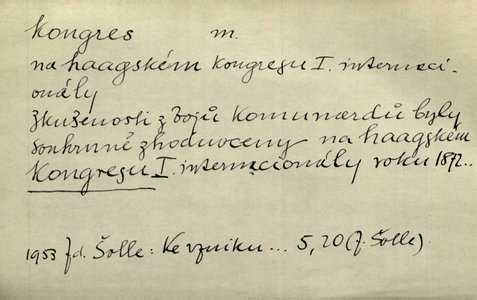 kongres m.
na haagském kongresu I. internaci-
onály
Zkušenosti z bojů komunardů byly
souhrnně zhodnoceny na haagském
kongresu I. internacionály roku 1872..
1953 Zd. Šolle: Ke vzniku... 5,20 (Z. Šolle).